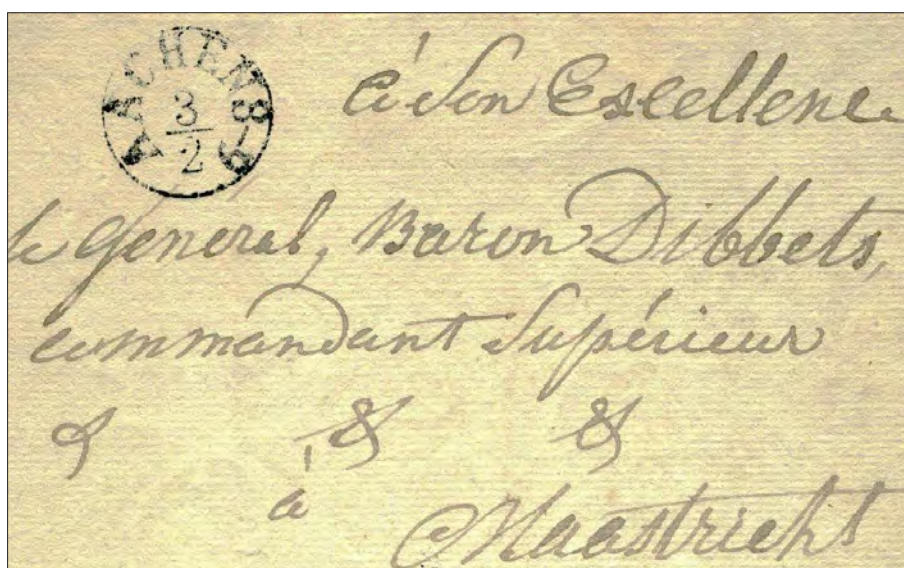 AACHEN 8-9
3
2
à Son Excellenc
le Général, Baron Dibbets,
commandant Supérieur
& & &
à
Maastricht